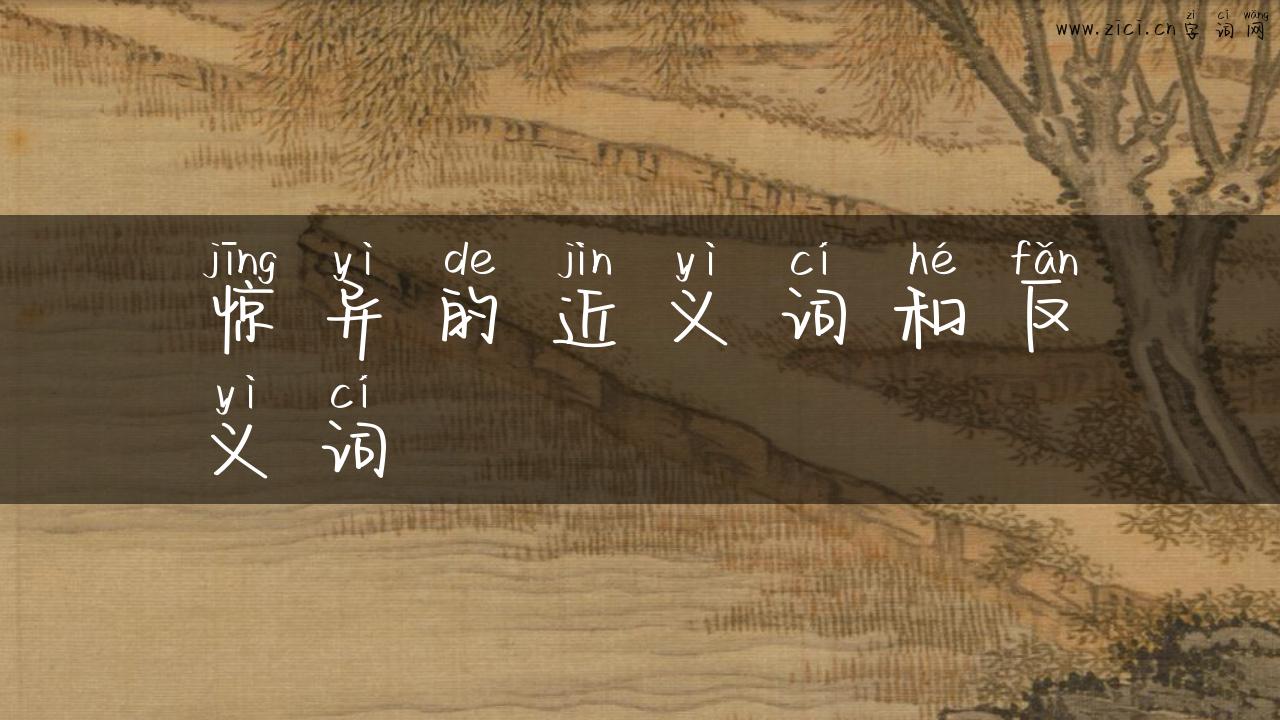 zì cí wǎng
www.zici.cn字词网
jīng yì de jìn yì cí hé fǎn
惊异的近义词和反
yì cí
义词